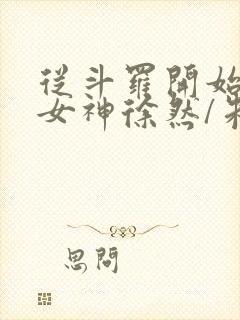 從斗羅開始
女神徐然/朱
思問